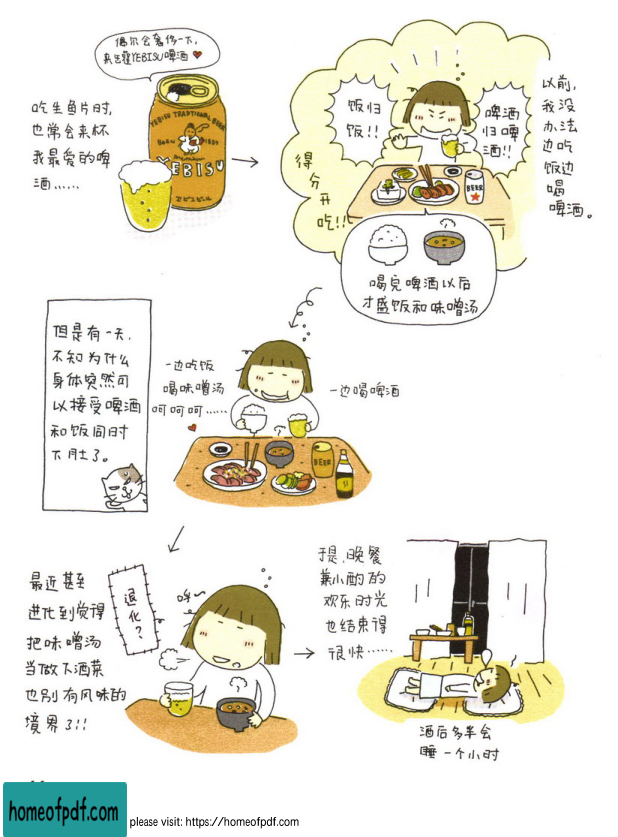 偶尔会奢侈一下，
来罐YEBISU啤酒♥
吃生鱼片时，
也常会来杯
我最爱的啤
酒……
YEBISU TRADITIONAL BEER
YEBISU
ヱビスビール
饭归
饭!!
啤酒
归啤
酒!!
得分开吃!!
以前，
我没
办法
边吃
饭边
喝
啤酒。
BEER
喝完啤酒以后
才盛饭和味噌汤
但是有一天，
不知为什么
身体突然可
以接受啤酒
和饭同时
下肚了。
一边吃饭
喝味噌汤
呵呵呵……
♥
一边喝啤酒
BEER
最近甚至
进化到觉得
把味噌汤
当做下酒菜
也别有风味的
境界了!!
退化？
呼～
于是，晚餐
兼小酌的
欢乐时光
也结束得
很快……
酒后多半会
睡一个小时
homeofpdf.com
please visit: https://homeofpdf.com